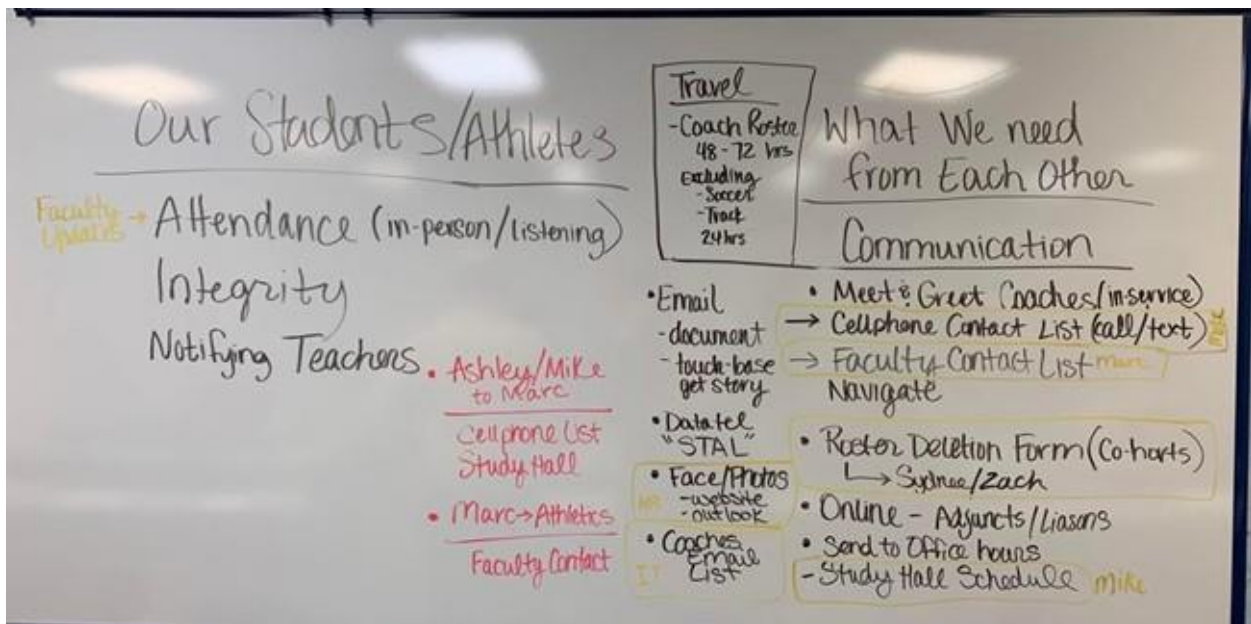 Our Students/Athletes
Faculty
Updates →
Attendance (in-person/listening)
Integrity
Notifying Teachers
• Ashley/Mike
to Marc
Cellphone List
Study Hall
• Marc → Athletics
Faculty Contact
Travel
- Coach Roster
48-72 hrs
Excluding
- Soccer
- Track
24 hrs
What We need
from Each Other
Communication
• Email
- document
- touch-base
get story
• Datatel
"STAL"
• Face/Photos
- website
- outlook
• Coaches
Email
List
IT
• Meet & Greet Coaches/(in-service)
→ Cellphone Contact List (call/text)
Mike
→ Faculty Contact List Marc
Navigate
• Roster Deletion Form (Co-horts)
↳ Sydnee/Zach
• Online - Adjuncts/Liasons
• Send to Office hours
- Study Hall Schedule Mike